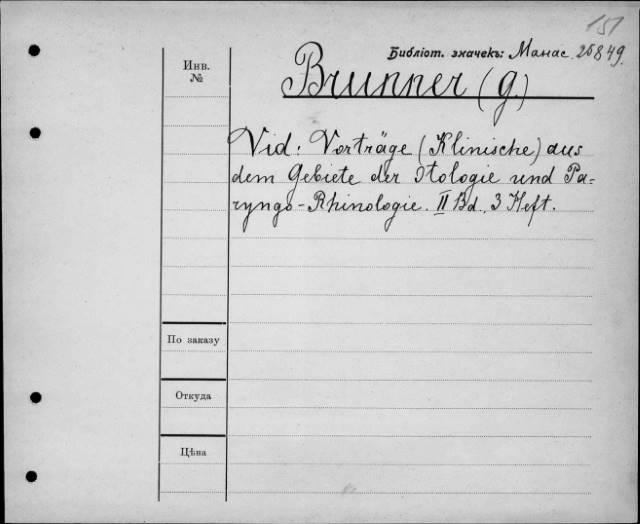 151
Библіот. значекъ: Манас 25849.
Инв.
№
Brunner (G.)
Vid: Vorträge (Klinische) aus
dem Gebiete der Otologie und Pa-
ryngo-Rhinologie. II Bd., 3 Heft.
По заказу
Откуда
Цѣна